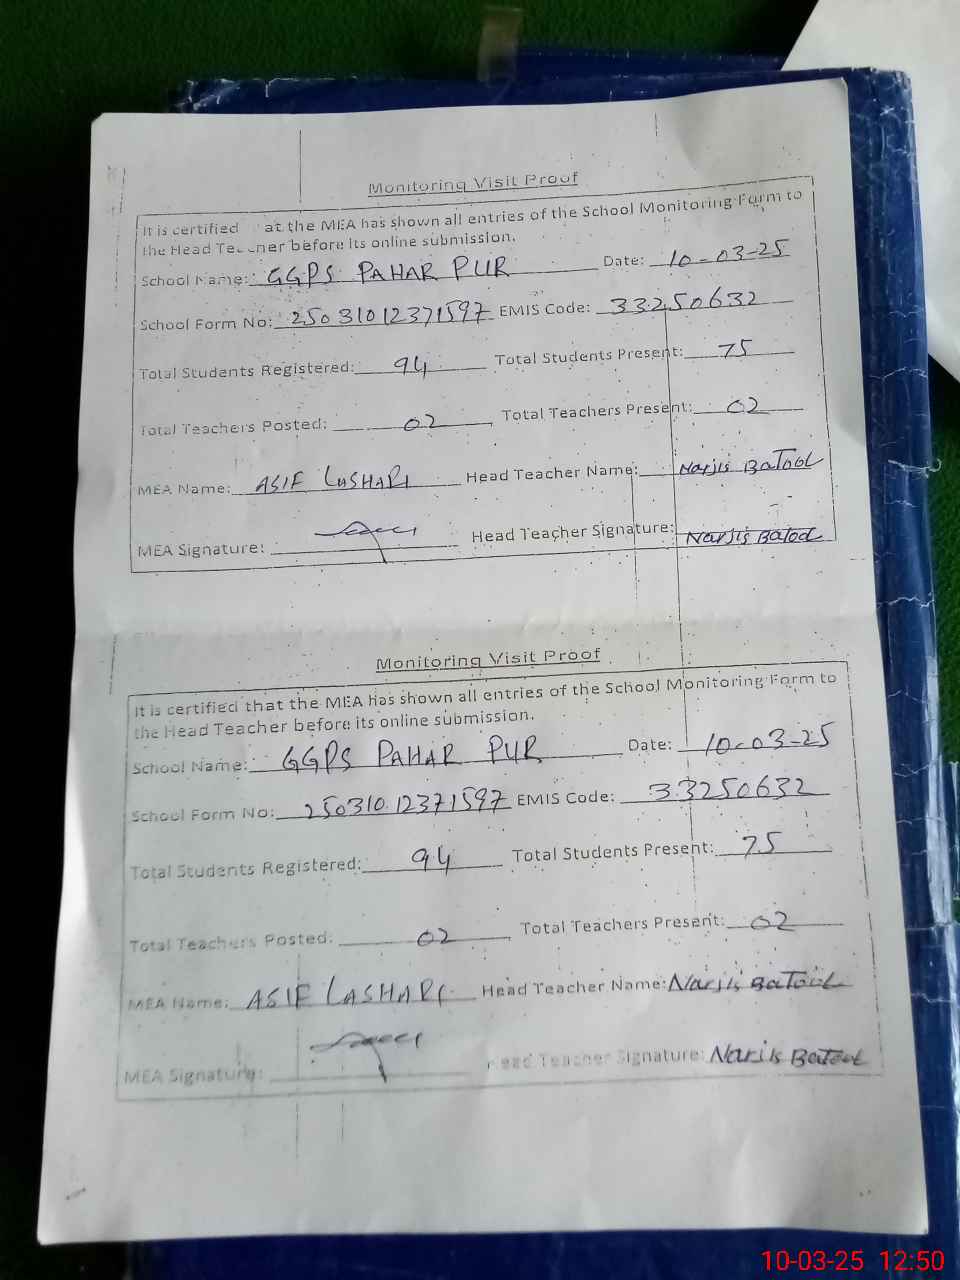 Monitoring Visit Proof
It is certified at the MEA has shown all entries of the School Monitoring Form to
the Head Teacher before its online submission.
School Name: GGPS PAHAR PUR Date: 10-03-25
School Form No: 25031012371597 EMIS Code: 33250632
Total Students Registered: 94 Total Students Present: 75
Total Teachers Posted: 02 Total Teachers Present: 02
MEA Name: ASIF LASHARI Head Teacher Name: Narjis Batool
MEA Signature: Head Teacher Signature: Narjis Batool
Monitoring Visit Proof
It is certified that the MEA has shown all entries of the School Monitoring Form to
the Head Teacher before its online submission.
School Name: GGPS PAHAR PUR Date: 10-03-25
School Form No: 25031012371597 EMIS Code: 33250632
Total Students Registered: 94 Total Students Present: 75
Total Teachers Posted: 02 Total Teachers Present: 02
MEA Name: ASIF LASHARI Head Teacher Name: Narjis Batool
MEA Signature: Head Teacher Signature: Narjis Batool
10-03-25 12:50